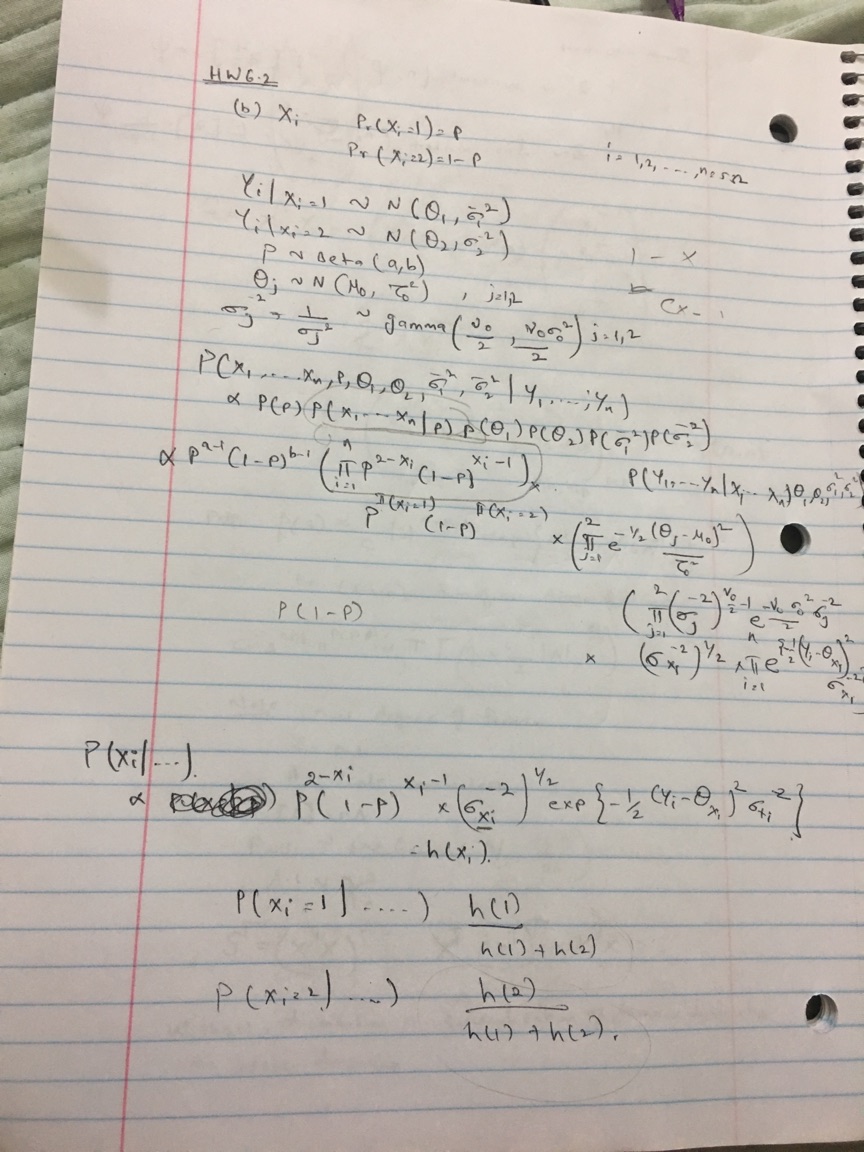 HW6.2
(b) Xi Pr(Xi=1)=P
Pr(Xi=2)=1-P i=1,2,....,n=522
Yi|Xi=1 ~ N(θ1, σ1²)
Yi|Xi=2 ~ N(θ2, σ2²)
P ~ Beta(a,b) 1 - X
θj ~ N(μ0, τ0²), j=1,2
σj⁻² = 1/σj² ~ gamma(ν0/2, ν0σ0²/2) j=1,2
P(X1,....Xn,P,θ1,θ2,σ1²,σ2²|Y1,....,Yn)
∝ P(P) P(X1....Xn|P) P(θ1)P(θ2)P(σ1⁻²)P(σ2⁻²)
P(Y1,...Yn|X1...Xn,θ1,θ2,σ1²,σ2²)
∝ P^(a-1) (1-P)^(b-1) (∏_{i=1}^{n} P^(2-Xi) (1-P)^(Xi-1)) ×
P^(Π(Xi=1)) (1-P)^(Π(Xi=2))
× (∏_{j=1}^{2} e^(-1/2 (θj-μ0)²/τ0²))
P(1-P)
(∏_{j=1}^{2} (σj⁻²)^(ν0/2-1) e^(-ν0/2 σ0² σj⁻²
× (σX1⁻²)^(1/2) × ∏_{i=1}^{n} e^(-1/2 (Yi-θX1)² σX1⁻²
P(Xi|...).
∝ P^(2-Xi) (1-P)^(Xi-1) × (σXi⁻²)^(1/2) exp{-1/2 (Yi-θXi)² σXi⁻²}
= h(Xi).
P(Xi=1|.....) h(1)/(h(1)+h(2))
P(Xi=2|....) h(2)/(h(1)+h(2)).